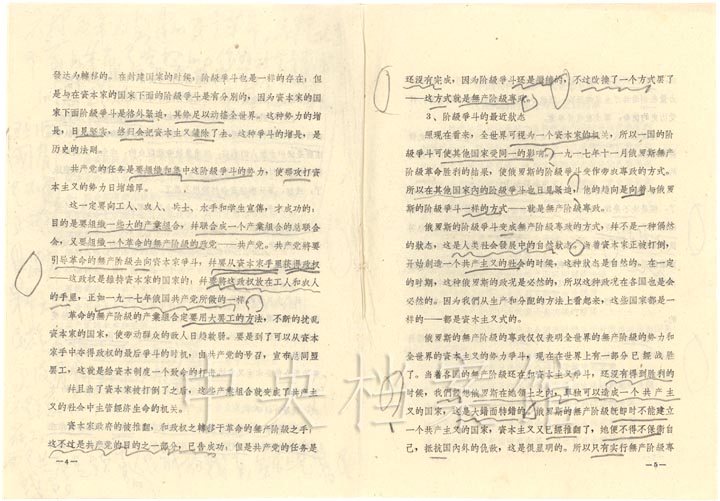 發达为轉移的。在封建国家的时候，阶級爭斗也是一样的存在；但
是与在資本家的国家下面的阶級爭斗是有分別的，因为資本家的国
家下面阶級爭斗是格外緊迫，其势足以动搖全世界。这种势力的增
長，日見堅实，終归会把資本主义鏟除了去。这种爭斗的增長，是
历史的法則。
共产党的任务是要組織和集中这阶級爭斗的势力，使那攻打資
本主义的势力日增雄厚。
这一定要向工人、农人、兵士、水手和学生宣傳，才成功的，
目的是要組織一些大的产業組合，并联合成一个产業組合的总联合
会，又要組織一个革命的無产阶級的政党——共产党。共产党将要
引导革命的無产阶級去向資本家爭斗，并要从資本家手里获得政权
——这政权是維持資本家的国家的，并要將这政权放在工人和农人
的手里，正如一九一七年俄国共产党所做的一样。
革命的無产阶級的产業組合定要用大罢工的方法，不断的扰乱
資本家的国家，使劳动群众的敌人日趋軟弱。要是到了可以从資本
家手中夺得政权的最后爭斗的时机，由共产党的号召，宣布总同盟
罢工，这就是給資本制度一个致命的打击。
并且当了資本家被打倒了之后，这些产業組合就变成了共产主
义的社会中主管經济生命的机关。
資本家政府的被推翻，和政权之轉移于革命的無产阶級之手，
这不过是共产党的目的之一部分，已告成功，但是共产党的任务是
—4—
还沒有完成，因为阶級爭斗还是繼續的，不过改換了一个方式罢了
——这方式就是無产阶級專政。
3、阶級爭斗的最近狀态
照現在看来，全世界可視为一个資本家的机关，所以一国的阶
級爭斗可使其他国家受同一的影响。一九一七年十一月俄罗斯無产
阶級革命胜利的結果，使俄罗斯的阶級爭斗变作劳农專政的方式。
所以在其他国家內的阶級爭斗也日見緊迫，他的趋向是向着与俄罗
斯的阶級爭斗一样的方式——就是無产阶級專政。
俄罗斯的阶級爭斗变成無产阶級專政的方式，并不是一种偶然
的狀态，这是人类社会發展中的自然狀态。当着資本家正被打倒，
开始創造一个共产主义的社会的时候，这种狀态是自然的。在一定
的时期，这种俄罗斯的政况是必然的，所以这种政况在各国也是会
必然的。因为我們从生产和分配的方法上看起来，这些国家都是一
样的——都是資本主义式的。
俄罗斯的無产阶級的專政仅仅表明全世界的無产阶級的势力和
全世界的資本主义的势力爭斗，現在在世界上有一部分已經战胜
了。当着各国的無产阶級还在和資本主义爭斗，还沒有得到胜利的
时候，我們想使俄罗斯在她領土之內，单独可以造成一个共产主
义的国家，这是大錯而特錯的。俄罗斯的無产阶級既即时不能建立
一个共产主义的国家，資本主义又已經推翻了，她便不得不保衛自
己，抵抗国內外的仇敌，这是很显明的。所以只有实行無产阶級專
—5—
中央档案馆